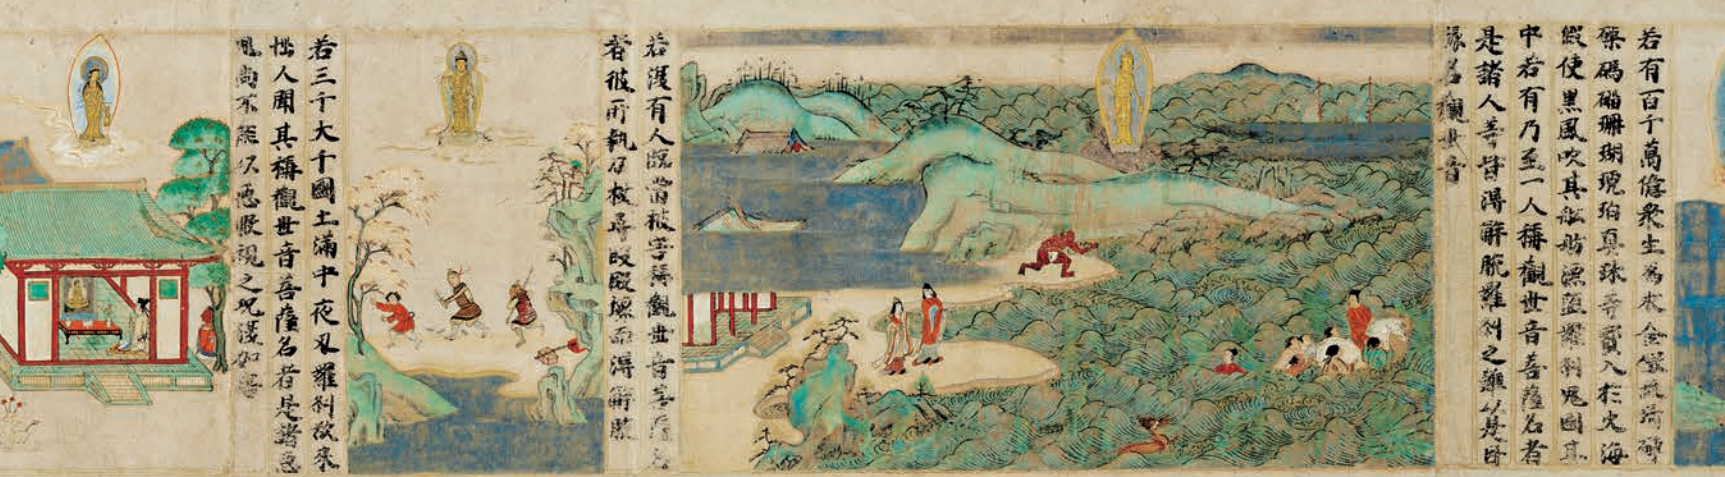 若有百千萬億衆生為求金銀瑠璃硨
磲碼碯珊瑚琥珀真珠等寳入於大海
假使黒風吹其舩舫漂墮羅刹鬼國其
中若有乃至一人稱觀世音菩薩名者
是諸人等皆得解脫羅刹之難以是因
縁名觀世音
若復有人臨當被害稱觀世音菩薩名
者彼所執刀杖尋段段壞而得解脫
若三千大千國土滿中夜叉羅刹欲來
惱人聞其稱觀世音菩薩名者是諸惡
鬼尚不能以惡眼視之况復加害